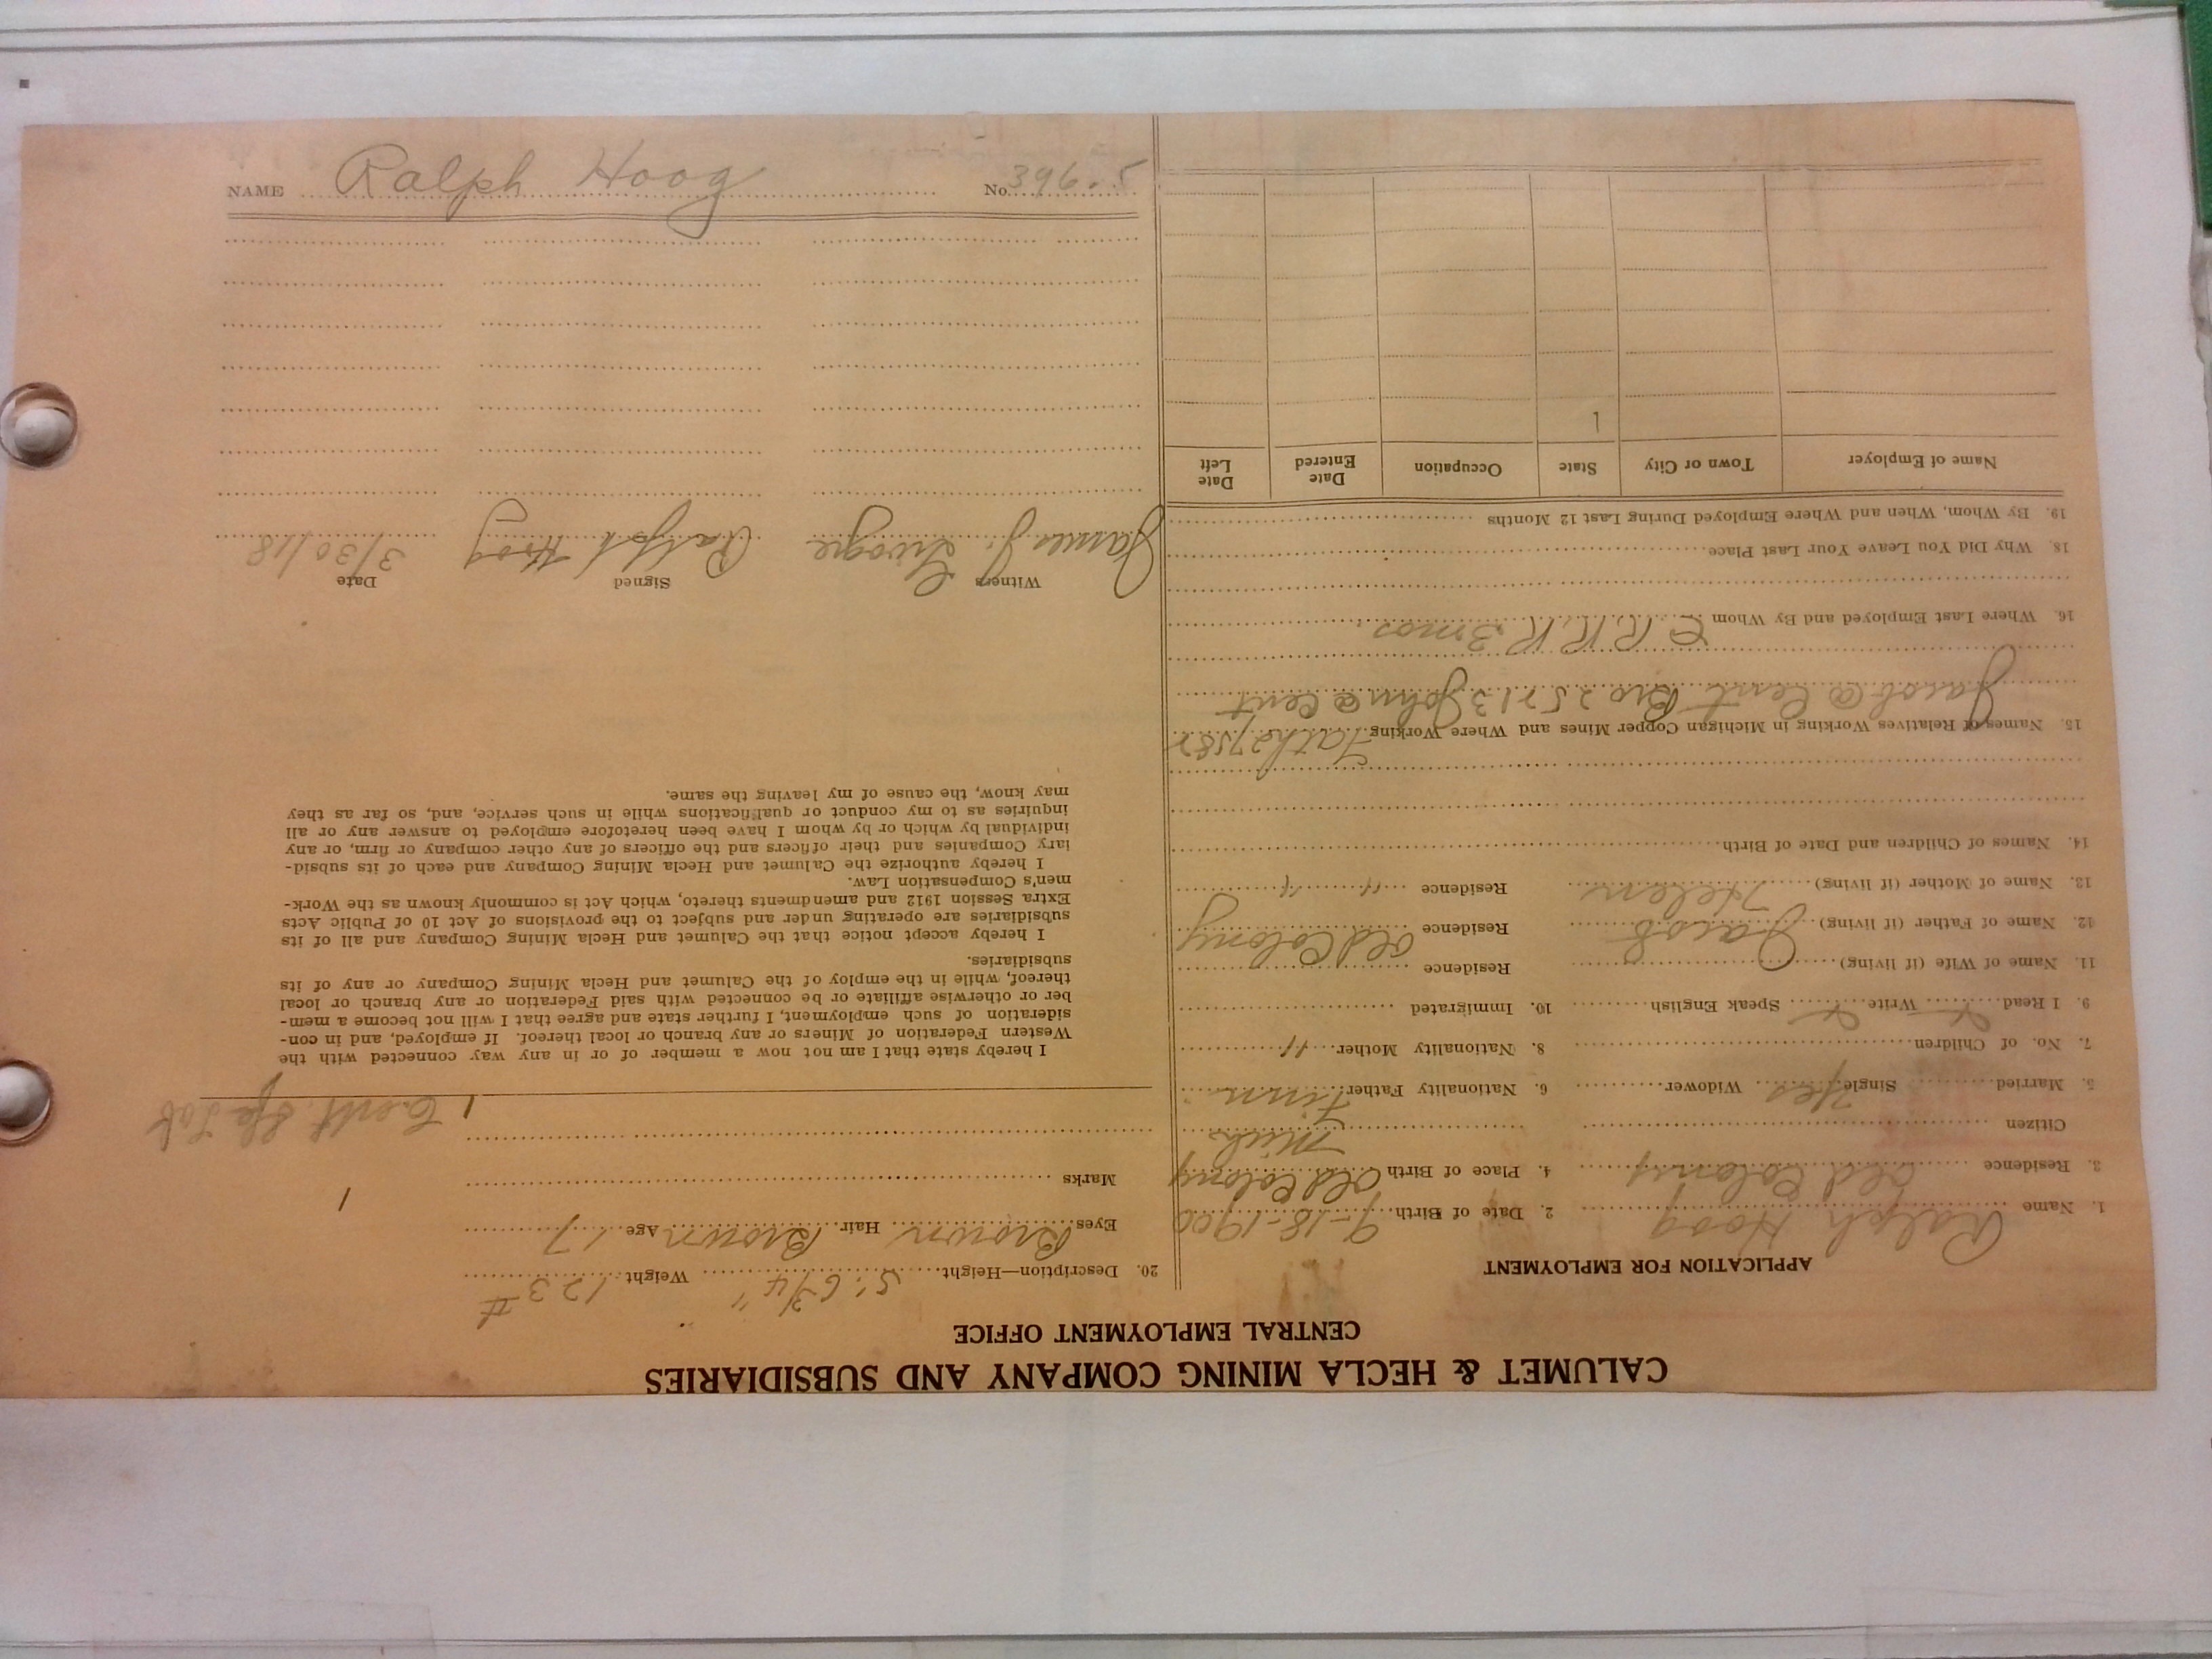 CALUMET & HECLA MINING COMPANY AND SUBSIDIARIES
CENTRAL EMPLOYMENT OFFICE
APPLICATION FOR EMPLOYMENT
1. Name Ralph Hoog 2. Date of Birth 9-18-1900
3. Residence Old Colony 4. Place of Birth Old Colony
Citizen Mich
5. Married Single Yes Widower 6. Nationality Father Finn
7. No. of Children 8. Nationality Mother "
9. I Read Write Speak English 10. Immigrated
11. Name of Wife (if living) Residence
12. Name of Father (if living) Jacob Residence Old Colony
13. Name of Mother (if living) Helen Residence " "
14. Names of Children and Date of Birth
15. Names of Relatives Working in Michigan Copper Mines and Where Working Father 2758
Jacob @ Cent Bro 25713 John @ Cent
16. Where Last Employed and By Whom C R.R.R. 3 mos
18. Why Did You Leave Your Last Place
19. By Whom, When and Where Employed During Last 12 Months
Name of Employer Town or City State Occupation Date Entered Date Left
20. Description—Height 5' 6 3/4" Weight 123 #
Eyes Brown Hair Brown Age 17
Marks
Cent. Lab
I hereby state that I am not now a member of or in any way connected with the
Western Federation of Miners or any branch or local thereof. If employed, and in con-
sideration of such employment, I further state and agree that I will not become a mem-
ber or otherwise affiliate or be connected with said Federation or any branch or local
thereof, while in the employ of the Calumet and Hecla Mining Company or any of its
subsidiaries.
I hereby accept notice that the Calumet and Hecla Mining Company and all of its
subsidiaries are operating under and subject to the provisions of Act 10 of Public Acts
Extra Session 1912 and amendments thereto, which Act is commonly known as the Work-
men's Compensation Law.
I hereby authorize the Calumet and Hecla Mining Company and each of its subsid-
iary Companies and their officers and the officers of any other company or firm, or any
individual by which or by whom I have been heretofore employed to answer any or all
inquiries as to my conduct or qualifications while in such service, and, so far as they
may know, the cause of my leaving the same.
Witness Signed Date
James J. Ralph Hoog 3/30/18
NAME Ralph Hoog No. 396.5